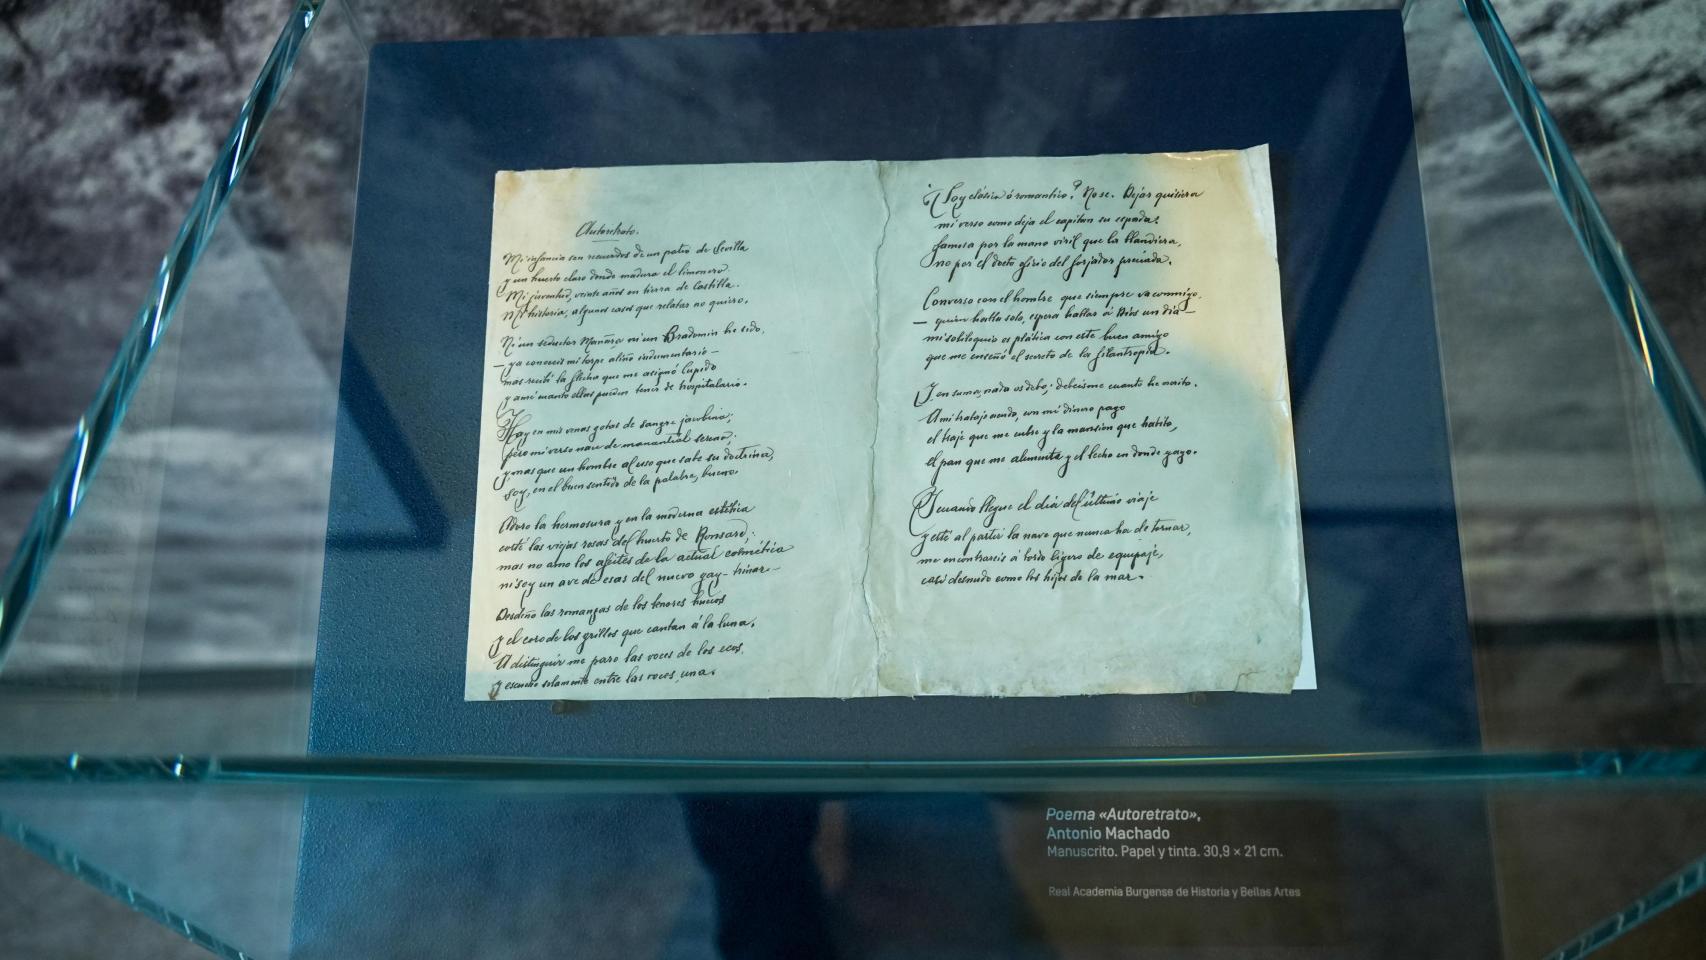 Autoretrato.
Mi infancia son recuerdos de un patio de Sevilla
y un huerto claro donde madura el limonero.
Mi juventud, veinte años en tierra de Castilla.
Mi historia, algunos casos que relatar no quiero.
Ni un seductor Mañara ni un Bradomin he sido,
— ya conoceis mi torpe aliño indumentario —
mas recibí la flecha que me asignó Cupido
y amé cuanto ellas pueden tener de hospitalario.
Hay en mis venas gotas de sangre jacobina;
pero mi verso nace de manantial sereno;
y mas que un hombre al uso que sabe su doctrina,
soy, en el buen sentido de la palabra, bueno.
Adoro la hermosura y en la moderna estética
corté las viejas rosas del huerto de Ronsard;
mas no amo los afeites de la actual cosmética
ni soy un ave de esas del nuevo gay-trinar—
Desdeño las romanzas de los tenores huecos
y el coro de los grillos que cantan á la luna.
A distinguir me paro las voces de los ecos,
y escucho solamente entre las voces, una.
¿Soy clásico ó romantico? No se. Dejar quisiera
mi verso como deja el capitan su espada:
famosa por la mano viril que la blandiera,
no por el docto oficio del forjador preciada.
Converso con el hombre que siempre va conmigo,
— quien habla solo, espera hablar á Dios un dia —
mi soliloquio es plática con este buen amigo
que me enseñó el secreto de la filantropía.
Y en suma, nada os debo; debeisme cuanto he escrito.
A mi trabajo acudo, con mi dinero pago
el traje que me cubre y la mansion que habito,
el pan que me alimenta y el lecho en donde yago.
Y cuando llegue el dia del último viaje
y esté al partir la nave que nunca ha de tornar,
me encontrareis á bordo ligero de equipaje,
casi desnudo como los hijos de la mar.
Poema «Autoretrato»,
Antonio Machado
Manuscrito. Papel y tinta. 30,9 × 21 cm.
Real Academia Burgense de Historia y Bellas Artes